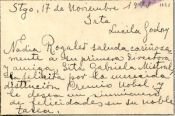 Stgo, 17 de Noviembre
Srta
Lucila Godoy
Nadia Rogales saluda cariñosa
mente a su primera Directora
y amiga, Srta Gabriela Mistral
la felicita por la merecida
distinción Premio Nobel y
le desea un sinnúmero
de felicidades en su noble
tarea.